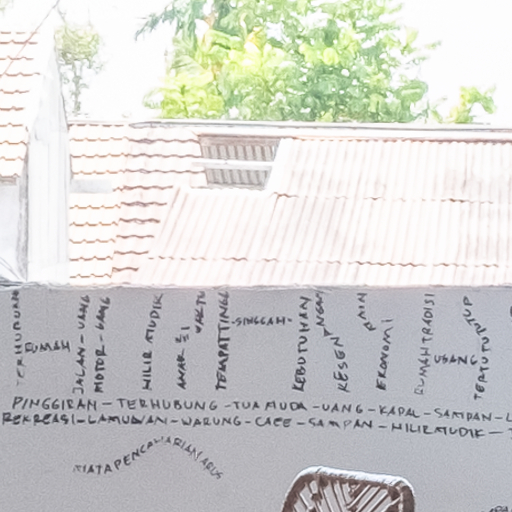 TERHUBUNG
RUMAH
JALAN-UANG
MOTOR-UANG
HILIR MUDIK
ANAK
WAKTU
TEMPAT TINGGAL
-SINGGAH-
KEBUTUHAN
EKONOMI
RUMAH TRADISI
USANG
TERTUTUP
PINGGIRAN-TERHUBUNG-TUA MUDA-UANG-KAPAL-SAMPAN-
REKREASI-LAMUNAN-WARUNG-CAFE-SAMPAN-HILIR MUDIK-
MATA PENCAHARIAN